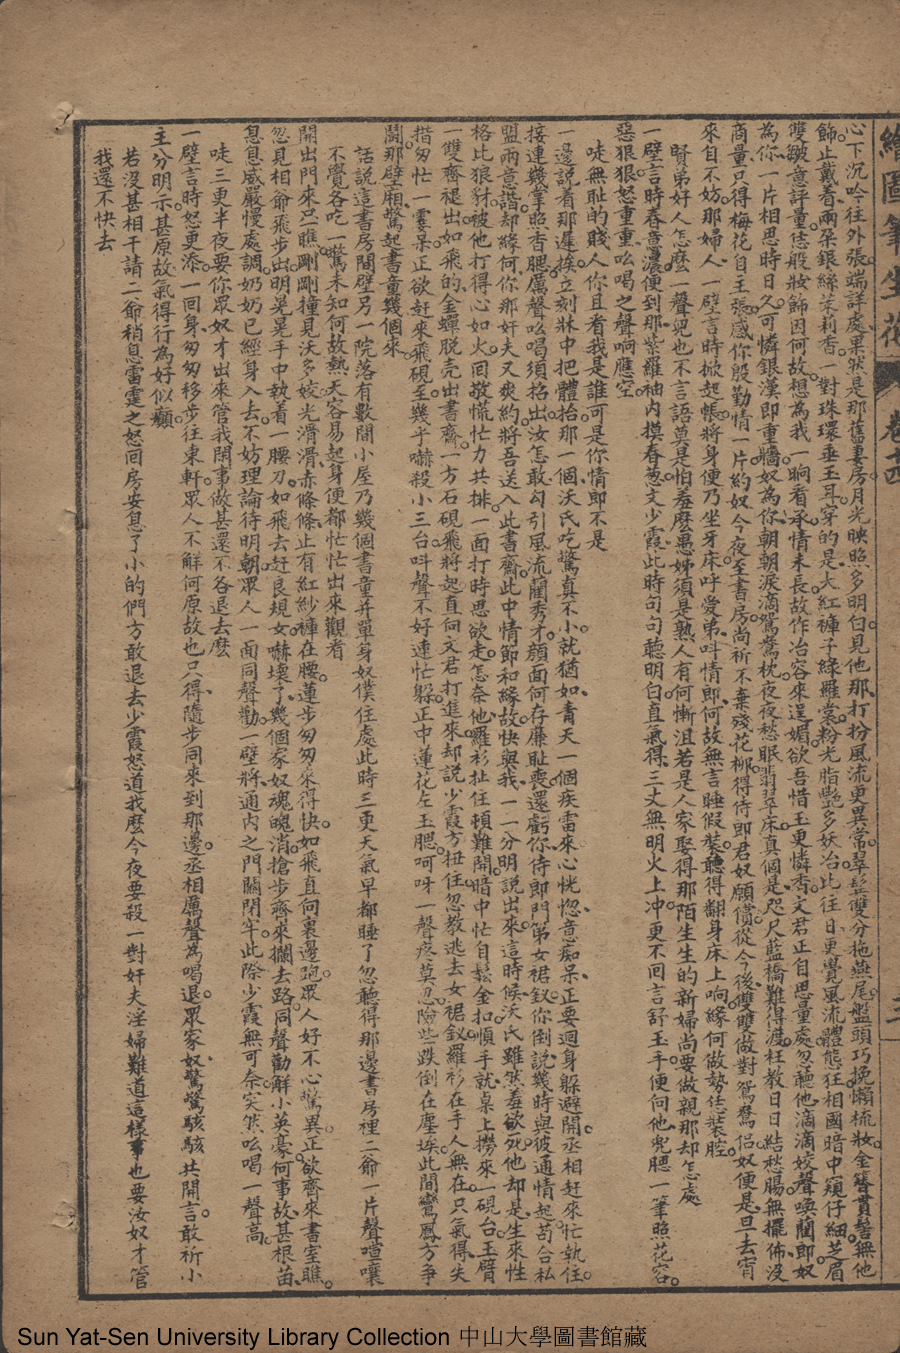 繪圖筆生花 卷十四 三
心下沉吟往外張端詳處果然是那舊書房月光映照多明白見他那打扮風流更異常翠髩雙分拖燕尾盤頭巧挽懶梳妝金簪貫髻無他
飾止戴着兩朶銀絲茉利香一對珠環垂玉耳穿的是大紅褲子綠羅裳粉光脂艷多妖冶比往日更覺風流體態狂相國暗中窺仔細芝眉
雙皺意評量恁般妝飾因何故想為我一晌看承情未長故作冶容來逞媚欲吾惜玉更憐香文君正自思量處忽聽他滴滴姣聲喚蘭即奴
為你一片相思時日久可憐銀漢即重牆奴為你朝朝淚滴鴛鴦枕夜夜愁眠翡翠床真個是咫尺藍橋難得渡枉教日日結愁腸無擺佈沒
商量只得梅花自主張感你殷勤情一片約奴今夜至書房尚祈不棄殘花柳得侍即君奴願償從今後雙雙做對鴛鴦侶奴便是旦去宵
來自不妨那婦人一壁言時掀起帳將身便乃坐牙床呼愛弟叫情即何故無言睡假裝聽得翻身床上响緣何做勢恁裝腔
賢弟好人怎麼一聲兒也不言語莫是怕羞麼愚姊須是熟人有何慚沮若是人家娶得那陌生生的新婦尚要做親那却怎處
一壁言時春意濃便到那紫羅袖內摸春葱文少霞此時句句聽明白直氣得三丈無明火上冲更不回言舒玉手便向他兜腮一筆照花容
惡狠狠怒重重吆喝之聲响應空
唗無恥的賤人你且看我是誰可是你情即不是
一邊說着那遲挨立刻牀中把體抬那一個沃氏吃驚真不小就猶如青天一個疾雷來心恍惚意痴呆正要迴身躲避開丞相赶來忙執住
接連幾掌照香腮厲聲吆喝須掐出汝怎敢勾引風流藺秀才顏面何存廉耻喪還虧你侍即門第女裙釵你倒說幾時與彼通情起苟合私
盟兩意諧却緣何你那奸夫又爽約將吾送入此書齋此中情節和緣故快與我一一分明說出來這時候沃氏雖然羞欲死他却是生來性
格比狼豺被他打得心如火回敬慌忙力共排一面打時思欲走怎奈他羅衫扯住頓難開暗中忙自鬆金扣順手就桌上撈來一硯台玉臂
一雙齊褪出如飛的金蟬脫壳出書齋一方石硯飛將起直向文君打進來却說少霞方扭住忽教逃去女裙釵羅衫在手人無在只氣得尖
揩匆忙一霎呆正欲赶來飛硯至幾乎嚇殺小三台呌聲不好連忙躲正中蓮花左玉腮呵呀一聲疼莫忍險些跌倒在塵埃此間鸞鳳方爭
鬬那壁廂驚起書童幾個來
話說這書房間壁另一院落有數間小屋乃幾個書童并單身奴僕住處此時三更天氣早都睡了忽聽得那邊書房裡二爺一片聲喧嚷
不覺各吃一驚未知何故熱天容易起身便都忙忙出來觀看
開出門來只一瞧剛剛撞見沃多姣光滑滑赤條條止有紅紗褲在腰蓮步匆匆來得快如飛直向裏邊跑眾人好不心驚異正欲齊來書室瞧
忽見相爺飛步出明晃晃手中執着一腰刀如飛去赶良規女嚇壞了幾個家奴魂魄消搶步齊來攔去路同聲勸解小英豪何事故甚根苗
息息威嚴慢處調奶奶已經身入去不妨理論待明朝眾人一面同聲勸一壁將通內之門關閉牢此際少霞無可奈突然吆喝一聲高
唗三更半夜要你眾奴才出來管我閒事做甚還不各退去麼
一壁言時怒更添一回身匆匆移步往東軒眾人不解何原故也只得隨步同來到那邊丞相厲聲為喝退眾家奴驚驚駭駭共開言敢祈小
主分明示甚原故氣得行為好似癲
若沒甚相干請二爺稍息雷霆之怒回房安息了小的們方敢退去少霞怒道我麼今夜要殺一對奸夫淫婦難道這樣事也要汝奴才管
我還不快去
Sun Yat-Sen University Library Collection 中山大學圖書館藏